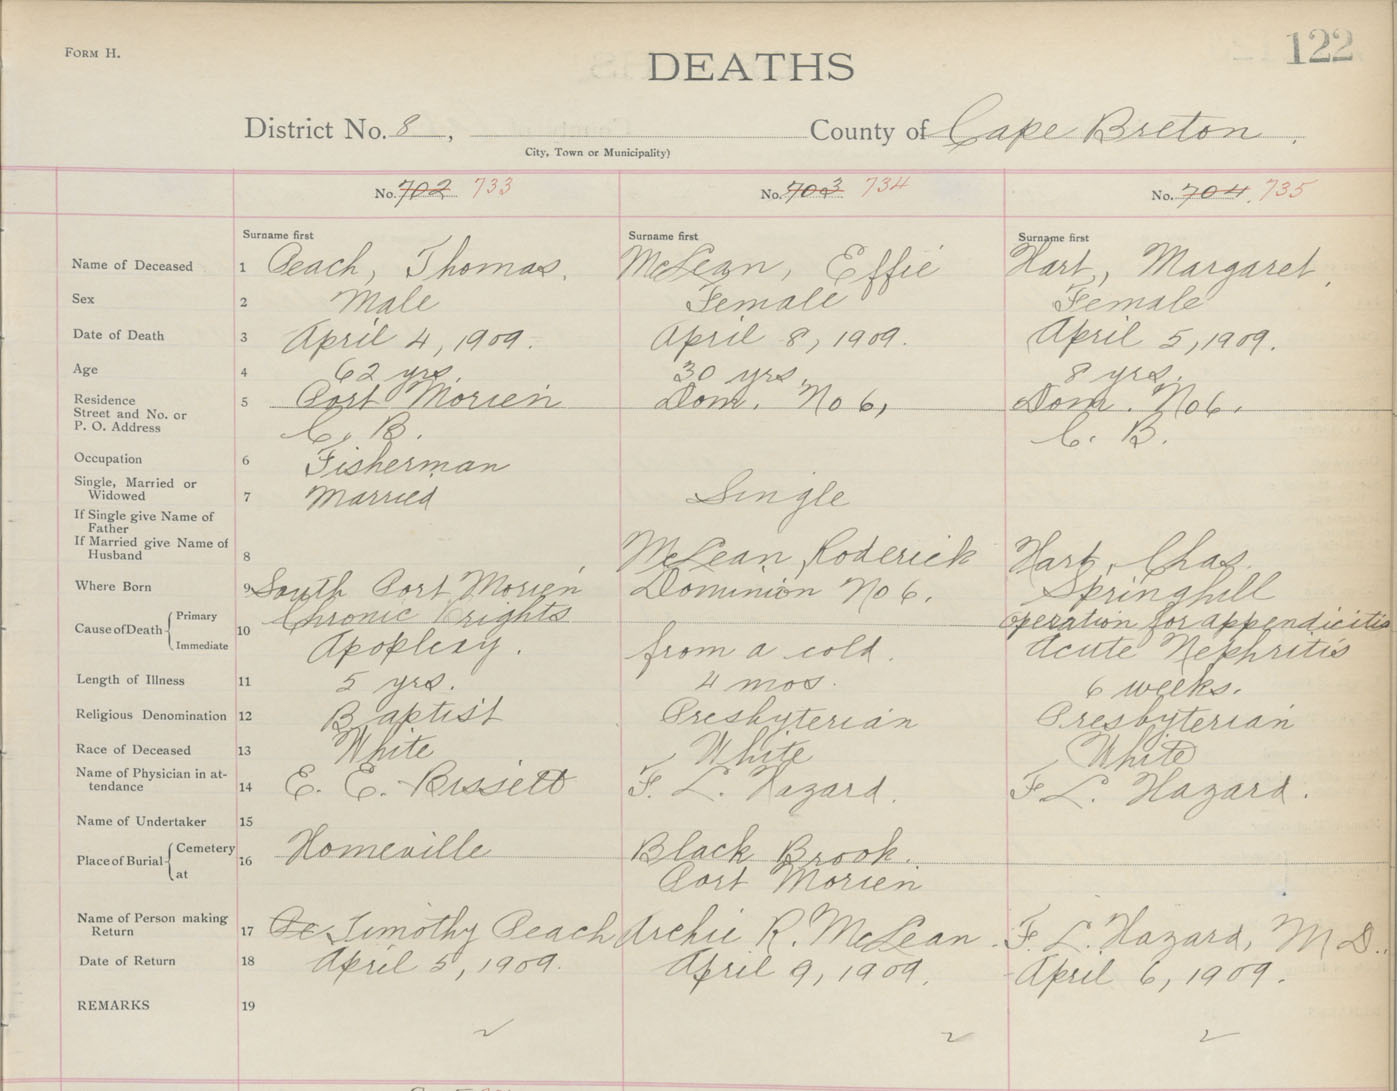 Form H.
122
DEATHS
District No. 8, County of Cape Breton.
City, Town or Municipality)
No. 702 733 No. 703 734 No. 704. 735
Surname first Surname first Surname first
Name of Deceased 1 Peach, Thomas. McLean, Effie Hart, Margaret.
Sex 2 Male Female Female
Date of Death 3 April 4, 1909. April 8, 1909. April 5, 1909.
Age 4 62 yrs. 30 yrs. 8 yrs.
Residence 5 Port Morien Dom. No 6, Dom. No 6.
Street and No. or
P. O. Address C. B. C. B.
Occupation 6 Fisherman
Single, Married or
Widowed 7 Married Single
If Single give Name of
Father
If Married give Name of
Husband 8 McLean, Roderick Hart, Chas.
Where Born 9 South Port Morien Dominion No 6. Springhill
Cause of Death Primary 10 Chronic Brights operation for appendicitis
Immediate Apoplexy. from a cold. Acute Nephritis
Length of Illness 11 5 yrs. 4 mos. 6 weeks.
Religious Denomination 12 Baptist Presbyterian Presbyterian
Race of Deceased 13 White White White
Name of Physician in at-
tendance 14 E. E. Bissett F. L. Hazard. F. L. Hazard.
Name of Undertaker 15
Place of Burial Cemetery 16 Homeville Black Brook.
at Port Morien
Name of Person making
Return 17 Pe Timothy Peach Archie R. McLean. F. L. Hazard, M D.
Date of Return 18 April 5, 1909. April 9, 1909. April 6, 1909.
REMARKS 19